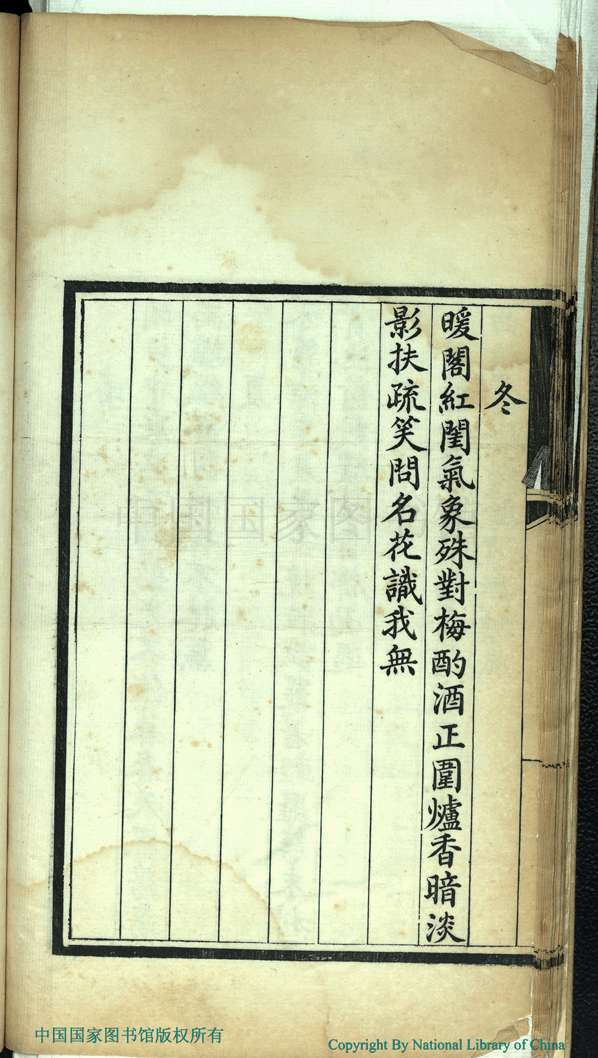 冬
暖閣紅閨氣象殊對梅酌酒正圍爐香暗淡
影扶疏笑問名花識我無
中国国家图
中国国家图书馆版权所有
Copyright By National Library of China